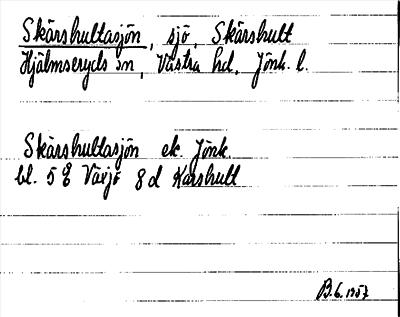 Skärshultasjön, sjö, Skärshult
Hjälmseryds sn, Västra hd, Jönk. l.
Skärshultasjön ek. Jönk.
bl. 5 E Växjö 8 d Kärshult
B.G. 1957